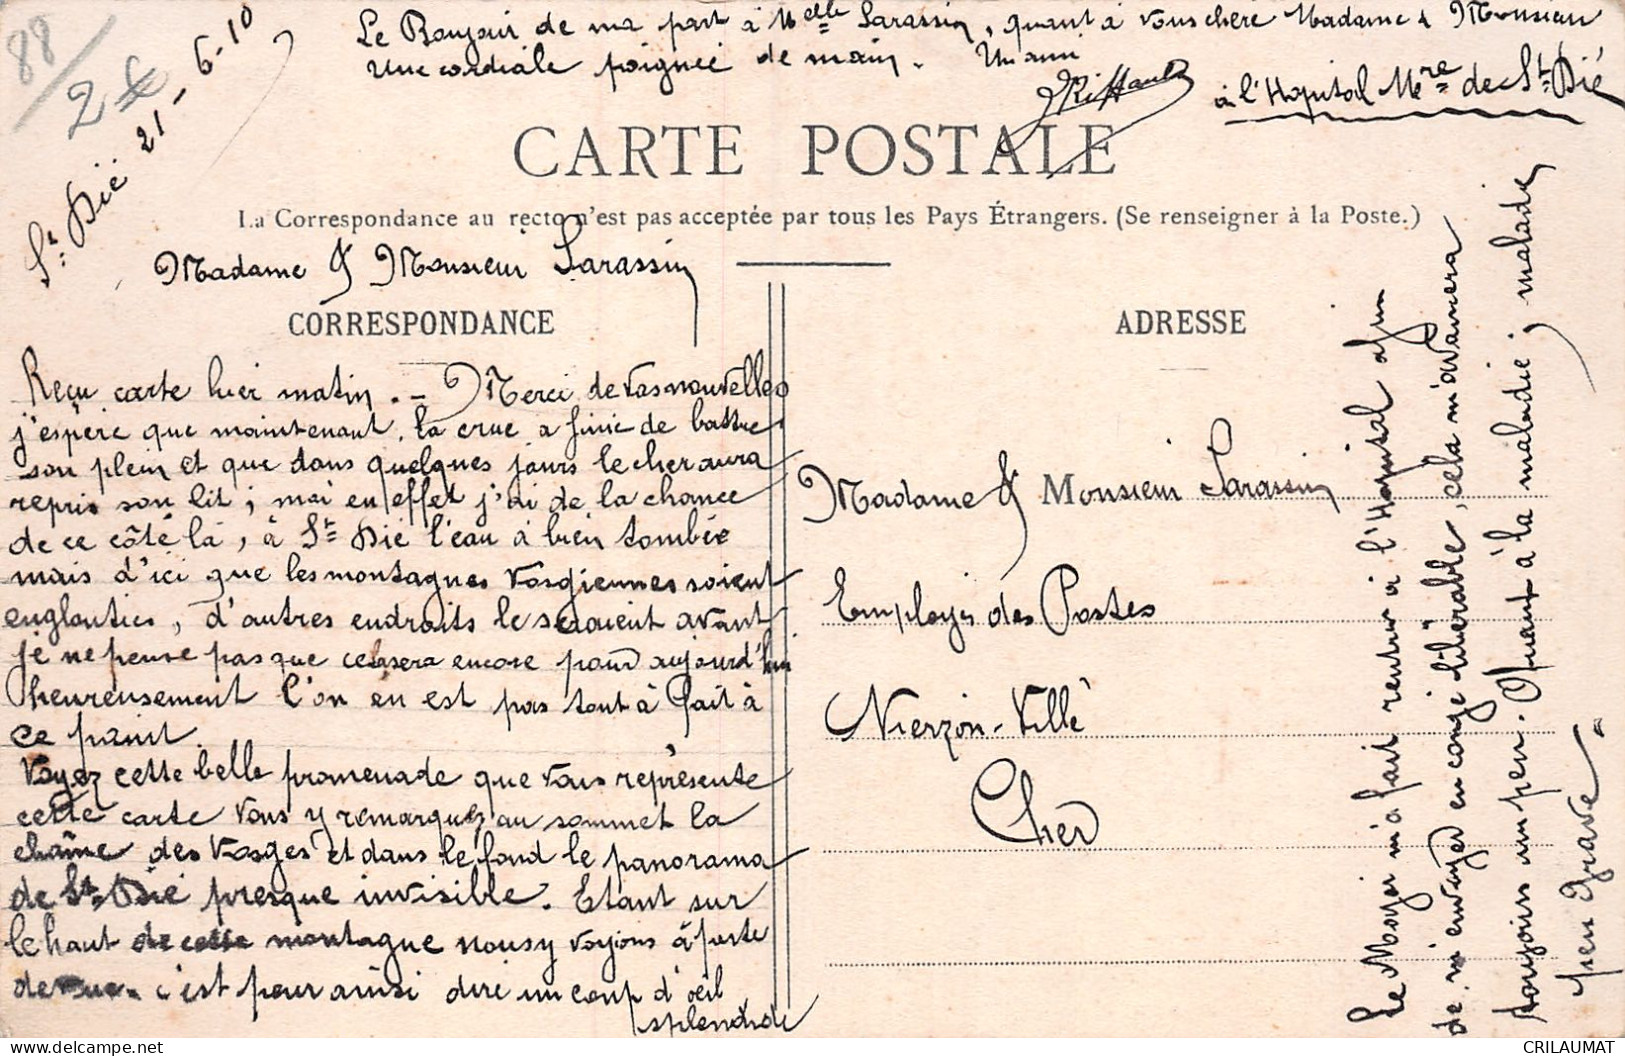 88/
2 €
St Dié 21-6-10
Le Bonjour de ma part à Melle Sarassin, quant à vous chère Madame & Monsieur
Une cordiale poignée de main. Un ami
Riffault
à l'Hopital Mre de St Dié
CARTE POSTALE
La Correspondance au recto n'est pas acceptée par tous les Pays Étrangers. (Se renseigner à la Poste.)
Madame & Monsieur Sarassin
CORRESPONDANCE
Reçu carte hier matin. - Merci de vos nouvelles
j'espère que maintenant, la crue a finie de battre
son plein et que dans quelques jours le cher aura
repris son lit; moi en effet j'ai de la chance
de ce côté là, à St Dié l'eau à bien tombée
mais d'ici que les montagnes vosgiennes soient
englouties, d'autres endroits le seraient avant
je ne pense pas que ce sera encore pour aujourd'hui
heureusement l'on en est pas tout à fait à
ce point.
Voyez cette belle promenade que vous représente
cette carte vous y remarquez au sommet la
chaîne des Vosges et dans le fond le panorama
de St Dié presque invisible. Etant sur
le haut de cette montagne nous y voyions à perte
de vue. c'est pour ainsi dire un coup d'œil
splendide
ADRESSE
Madame & Monsieur Sarassin
Employés des Postes
Vierzon-Ville
Cher
Le Major m'a fait rentrer à l'Hopital afin
de m'envoyer en congé libérable, cela m'avancera
toujours un peu. Quant à la maladie; maladie
peu grave.
CRILAUMAT